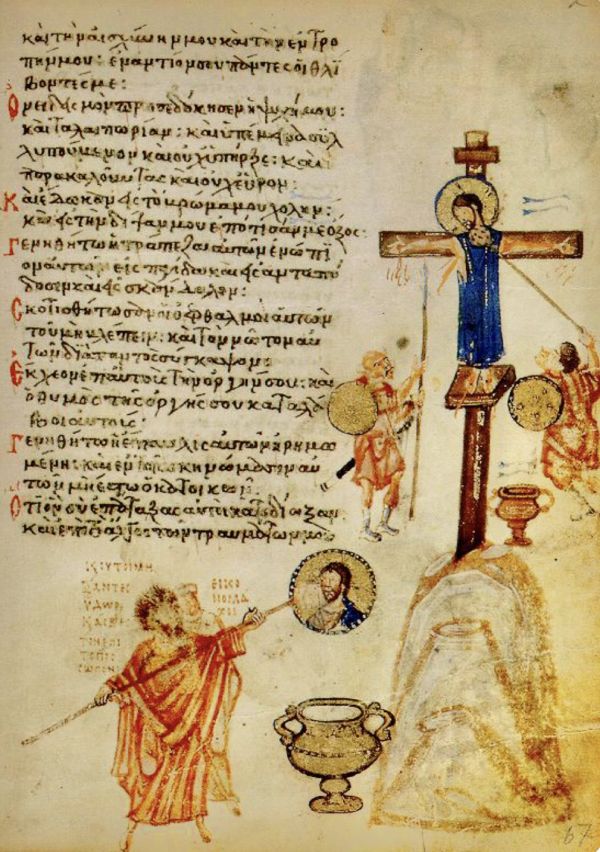 καὶ τὴν αἰσχύνην μου καὶ τὴν ἐντρο
πήν μου : ἐναντίον σου πάντες οἱ θλί
βοντές με :
καὶ ταλαιπωρίαν : καὶ ὑπέμεινα συλ
λυπούμενον καὶ οὐχ ὑπῆρξε : καὶ
παρακαλοῦντας καὶ οὐχ εὗρον :
Καὶ ἔδωκαν εἰς τὸ βρῶμα μου χολὴν :
καὶ εἰς τὴν δίψαν μου ἐπότισάν με ὄξος :
Γενηθήτω ἡ τράπεζα αὐτῶν ἐνώπι
ον αὐτῶν εἰς παγίδα καὶ εἰς ἀνταπό
δοσιν καὶ εἰς σκάνδαλον :
Σκοτισθήτωσαν οἱ ὀφθαλμοὶ αὐτῶν
τοῦ μὴ βλέπειν : καὶ τὸν νῶτον αὐ
τῶν διὰ παντὸς σύγκαμψον :
Ἔκχεον ἐπ' αὐτοὺς τὴν ὀργήν σου : καὶ
ὁ θυμὸς τῆς ὀργῆς σου καταλά
βοι αὐτούς :
Γενηθήτω ἡ ἔπαυλις αὐτῶν ἠρημω
μένη : καὶ ἐν τοῖς σκηνώμασιν αὐ
τῶν μὴ ἔστω ὁ κατοικῶν :
Ὅτι ὃν σὺ ἐπάταξας αὐτοὶ κατεδίωξαν
καὶ ἐπὶ τὸ ἄλγος τῶν τραυμάτων μου
67